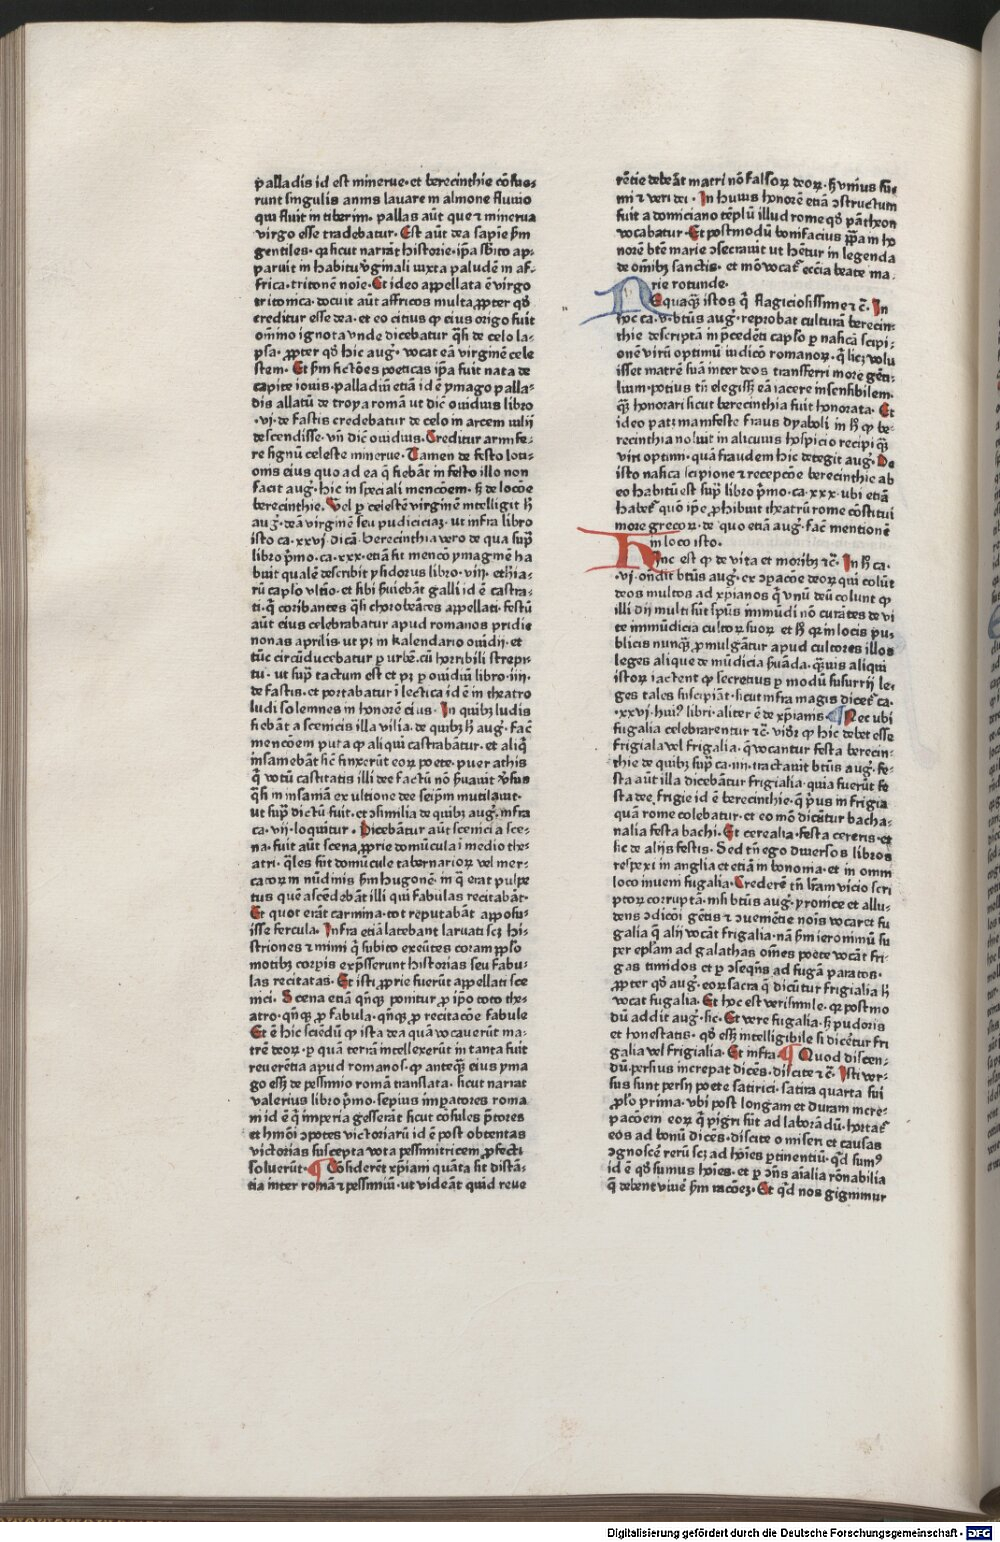 palladis id est minerue·et berecinthie cõsue⸗
runt singulis annis lauare in almone fluuio
qui fluit in tiberim· pallas aũt que ⁊ minerua
virgo esse tradebatur· Est aũt dea sapiẽ ẜm
gentiles· q̃ sicut narrãt historie·ip̃a s̃bito ap⸗
paruit in habitu v̾ginali iuxta paludẽ in af⸗
frica·tritonẽ noĩe· Et ideo appellata ẽ virgo
tritonica·docuit aũt affricos multa ꝓpter qd̾
creditur esse dea·et eo citius ꝙ eius origo fuit
om̃ino ignota vnde dicebatur q̃si de celo la⸗
psa· ꝓpter qd̾ hic aug᷒·vocat eã virginẽ cele
stem· Et ẜm fictões poeticas ip̃a fuit nata de
capite iouis·palladiũ etiã id ẽ ymago palla⸗
dis allatũ de troya romã ut dic̃ ouidius libro
·vj·de fastis credebatur de celo in arcem iulij
descendisse· vñ dic̃ ouidius· Creditur armife⸗
re signũ celeste minerue· Tamen de festo loti⸗
onis eius quo ad ea q̃ fiebãt in festo illo non
facit aug᷒·hic in speciali mencõem· s̃ de locõe
berecinthie· Vel ꝑ celestẽ virginẽ intelligit h̃
aug᷒·deã virginẽ seu pudiciciaʒ·ut infra libro
isto ca·xxvj·dicã·berecinthia vero de qua sup̃
libro p̃mo·ca·xxx·etiã fit mencõ ymaginẽ ha
buit qualẽ describit ysidorus libro·viij·ethia⸗
rũ cap̃lo vltio·et sibi s̃uiebãt galli id ẽ castra⸗
ti·q̃ coribantes q̃si chorobeãtes appellati·festũ
aũt eius celebrabatur apud romanos pridie
nonas aprilis·ut pʒ in kalendario ouidij·et
tũc circũducebatur ꝑ urbẽ·cũ horribili strepi⸗
tu·ut sup̃ tactum est et pʒ ꝑ ouidiũ libro·iiij·
de fastis·et portabatur ĩ lectica id ẽ in theatro
ludi solemnes in honorẽ eius· In quibʒ ludis
fiebãt a scenicis illa vilia·de quibʒ h̃ aug᷒·fac̃
mencõem puta ꝙ aliqui castrabãtur·et aliq̃
insamebãt sic̃ finxerũt eoꝝ poete·puer athis
q̃ votũ castitatis illi dee factũ nõ s̃uauit v̾sus
q̃si in insaniã ex ultione dee seip̃m mutilauit·
ut sup̃ dictũ fuit·et ɔsimilia de quibʒ aug᷒·infra
ca·vij·loquitur· Dicebãtur aũt scenici a sce⸗
na·fuit aũt scena ꝓprie domũcula ĩ medio the⸗
atri·q̃les sũt domũcule tabernarioꝝ vel mer⸗
catoꝝ in nũdinis ẜm hugonẽ·in q̃ erat pulpe
tus quẽ ascẽdebãt illi qui fabulas recitabãt·
Et quot erãt carmina·tot reputabãt apposu⸗
isse fercula· Infra etiã latebant laruati scʒ hi⸗
striones ⁊ mimi q̃ subito exeũtes coram pp̃lo
motibʒ corp̃is exp̃sserunt historias seu fabu⸗
las recitatas· Et isti ꝓprie fuerũt appellati sce
nici· Scena etiã qñqʒ ponitur ꝓ ip̃o toto the⸗
atro·qñqʒ ꝓ fabula·qñqʒ ꝓ recitacõe fabule
Et ẽ hic sciẽdũ ꝙ ista dea quã vocauerũt ma⸗
trẽ deoꝝ·ꝑ quã terrã intellexerũt in tanta fuit
reuerẽtia apud romanos·ꝙ anteqʒ̃ eius yma
go ess̃ de pessinio romã translata·sicut narrat
valerius libro p̃mo·sepius imp̃atores roma
ni id ẽ q̃ imperia gesserãt sicut cõsules p̃tores
et hm̃õi ɔpotes victoriarũ id ẽ post obtentas
victorias suscepta vota pessinitricem ꝓfecti
soluerũt· ¶ Cõsiderẽt xp̃iani quãta sit distã⸗
tia inter romã ⁊ pessiniũ·ut videãt quid reue
rẽtie debeãt matri nõ falsoꝝ deoꝝ·s̃ vnius sũ⸗
mi ⁊ veri dei· In huius honorẽ etiã ɔstructum
fuit a domiciano tẽplũ illud rome qd̾ pãtheon
vocabatur· Et postmodũ bonifacius pp̃am ho
norẽ btẽ marie ɔsecrauit ut hẽtur in legenda
de om̃ibʒ sanctis· et mõ vocat̃ ecc̃ia beate ma⸗
rie rotunde·
NEquaqʒ̃ istos q̃ flagiciosissime ⁊ c̃· In
hoc ca·v·btũs aug᷒·reprobat culturã berecin
thie descriptã in p̃cedẽti cap̃lo ꝑ nasicã scipi⸗
onẽ virũ optimũ iudicõ romanoꝝ·q̃ licʒ volu
isset matrẽ suã inter deos transferri more gẽti⸗
lium·potius tñ elegiss̃ eã iacere insensibilem·
qʒ̃ honorari sicut berecinthia fuit honorata· Et
ideo pati manifeste fraus dyaboli in h̃ ꝙ be⸗
recinthia noluit in alicuius hospicio recipi qʒ̃
viri optimi·quã fraudem hic detegit aug᷒· De
isto nasica scipione ⁊ recepcõe berecinthie ab
eo habitũ est sup̃ libro p̃mo·ca·xxx·ubi etiã
habet̃ quõ ip̃e ꝓhibuit theatrũ rome cõstitui
more grecoꝝ·de quo etiã aug᷒·fac̃ mentionẽ
in loco isto·
HInc est ꝙ de vita et moribʒ ⁊c̃· In h̃ ca·
·vj·oñdit btũs aug᷒·ex ɔpacõe deoꝝ qui colũt
deos multos ad xp̃ianos q̃ vnũ deũ colunt ꝙ
illi dij multi sũt sp̃us immũdi nõ curãtes de vi
te immũdicia cultoꝝ suoꝝ et h̃ qꝛ in locis pu⸗
blicis nunqʒ̃ ꝓmulgãtur apud cultores illos
leges alique de mũdicia s̃uãda·qʒ̃uis aliqui
istoꝝ iactent ꝙ secretius ꝑ modũ susurrij le⸗
ges tales suscipiãt·sicut infra magis dicet̃ ca·
·xxvj·hui᷒ libri·aliter ẽ de xp̃ianis ¶ Nec ubi
fugalia celebrarentur ⁊c̃· vidr̃ ꝙ hic debet esse
frigiala vel frigalia·q̃ vocantur festa berecin⸗
thie de quibʒ sup̃ ca·iiij·tractauit btũs aug᷒·fe⸗
sta aũt illa dicebãtur frigialia·quia fuerũt fe
sta dee frigie id ẽ berecinthie·q̃ p̾us in frigia
quã rome colebatur·et eo mõ dicũtur bacha⸗
nalia festa bachi· Et cerealia·festa cereris·et
sic de alijs festis· Sed tñ ego diuersos libros
respexi in anglia et etiã in bononia·et in omni
loco inueni fugalia· Crederẽ tñ lr̃am vicio scri
ptoꝝ corruptã·nisi btũs aug᷒·yronice et allu⸗
dens ɔdicõi gẽtis ⁊ ɔuenientie nois vocaret fu
galia q̃ alij vocãt frigalia·nã ẜm ieronimũ su
per ep̃lam ad galathas om̃es poete vocãt fri⸗
gas timidos et ꝑ ɔseqñs ad fugã paratos·
ꝓpter qd̾ aug᷒·eoꝝ sacra q̃ dicũtur frigialia h̃
vocat fugalia· Et hoc est verisimile·qꝛ postmo
dũ addit aug᷒·sic· Et vere fugalia·s̃ pudoris
et honestatis· qd̾ ess̃ intelligibile si dicẽtur fri
galia vel frigialia· Et infra ¶ Quod discen⸗
dũ·persius increpat dicẽs·discite ⁊ c̃· Isti ver⸗
sus sunt persij poete satirici·satira quarta sui
ꝓl̃o prima·vbi post longam et duram incre⸗
pacõem eoꝝ q̃ pigri sũt ad laborãdũ·hortat̃
eos ad bonũ dicẽs·discite o miseri et causas
ɔgnoscẽ rerũ scʒ ad hoĩes ꝑtinentiũ·qd̃ sum᷒
id ẽ qd̾ sumus hoĩes·et ꝑ ɔñs aĩalia rõnabilia
q̃ debent viuẽ ẜm racõeʒ· Et qd̃ nos gignimur
Digitalisierung gefördert durch die Deutsche Forschungsgemeinschaft - DFG